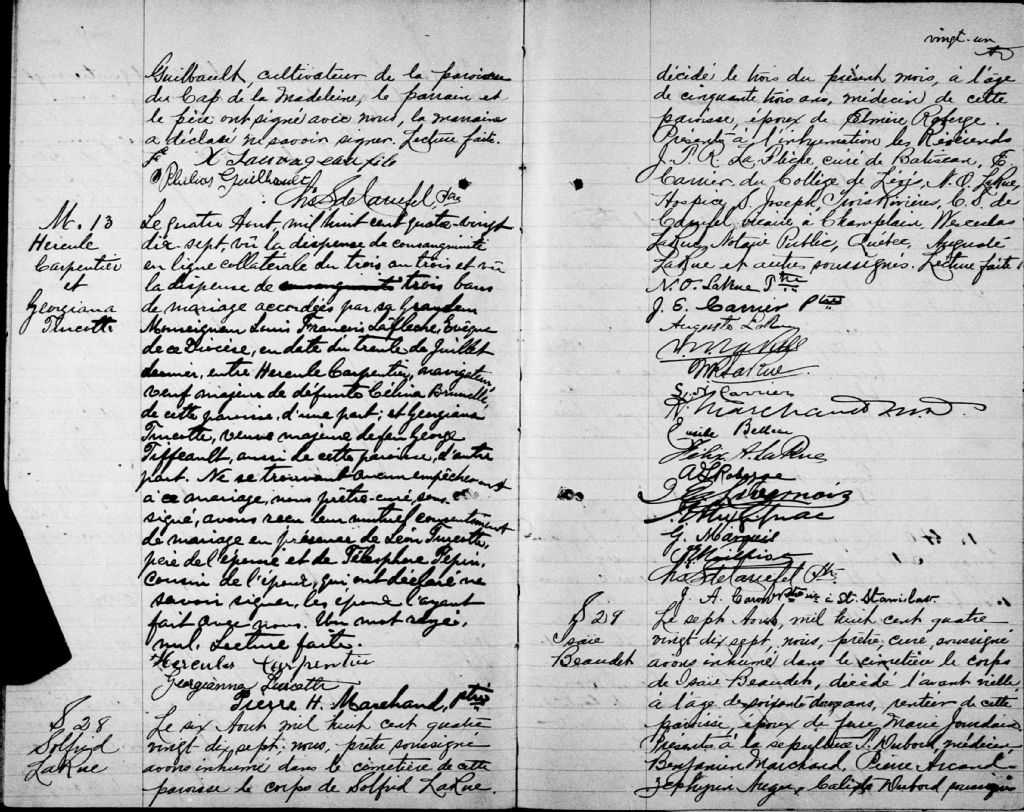 Guilbault, cultivateur de la paroisse
du Cap de la Madeleine, le parrain et
le père ont signé avec nous, la marraine
a déclaré ne savoir signer. Lecture faite.
F X Sauvageau fils
Philias Guilbault
Chs Bellemare Ptre
M. 13
Hercule
Carpentier
et
Georgiana
Turcotte
Le quatre Aout, mil huit cent quatre-vingt
dix-sept, vû la dispense de consanguinité
en ligne collatérale du trois au trois et vû
la dispense de trois bans
de mariage accordées par sa Grandeur
Monseigneur Louis François Lafleche, Evêque
de ce Diocèse, en date du trente de Juillet
dernier, entre Hercule Carpentier, navigateur,
veuf majeur de défunte Célina Brunelle
de cette paroisse, d'une part; et Georgiana
Turcotte, veuve majeure de feu George
Tiffeault, aussi de cette paroisse, d'autre
part. Ne se trouvant aucun empêchement
à ce mariage, nous prêtre-curé sous-
signé, avons reçu leur mutuel consentement
de mariage en présence de Léon Turcotte,
père de l'épouse et de Télesphore Pepin,
cousin de l'époux, qui ont déclaré ne
savoir signer, les époux l'ayant
fait avec nous. Un mot rayé,
nul. Lecture faite.
Hercules Carpentier
Georgianna Turcotte
Pierre H. Marchand, ptre
S 28
Solfrid
LaRue
Le six Aout mil huit cent quatre
vingt dix sept, nous, prêtre soussigné
avons inhumé dans le cimetière de cette
paroisse le corps de Solfrid LaRue.
vingt-un
décédé le trois du présent mois, à l'âge
de cinquante trois ans, médecin de cette
paroisse, époux de Elmire Roberge.
Présents à l'inhumation les Révérends
J. P. R. La Flèche, curé de Batiscan, E.
Carrier du Collège de Lévis, N. O. LaRue,
Hospice S. Joseph Trois Rivières, C. S. de
vicaire à Champlain,
LaRue, Notaire Public, Québec, Auguste
LaRue et autres soussignés. Lecture faite
N. O. LaRue Ptre
J. E. Carrier Ptre
Auguste LaRue
LaRue
Carrier
Marchand
Belleau
Félix A. LaRue
Roberge
G. Marquis
Ptre
J. A. Caron à St. Stanislas.
S 29
Isaïe
Beaudet
Le sept Aout, mil huit cent quatre
vingt dix sept, nous, prêtre, curé, soussigné
avons inhumé dans le cimetière le corps
de Isaïe Beaudet, décédé l'avant veille
à l'âge de soixante douze ans, rentier de cette
paroisse, époux de feue Marie Jourdain.
Présents à la sépulture P. Dubord, médecin
Benjamin Marchand, Pierre Arcand
Zephyrin Auger, Calixte Dubord soussignés